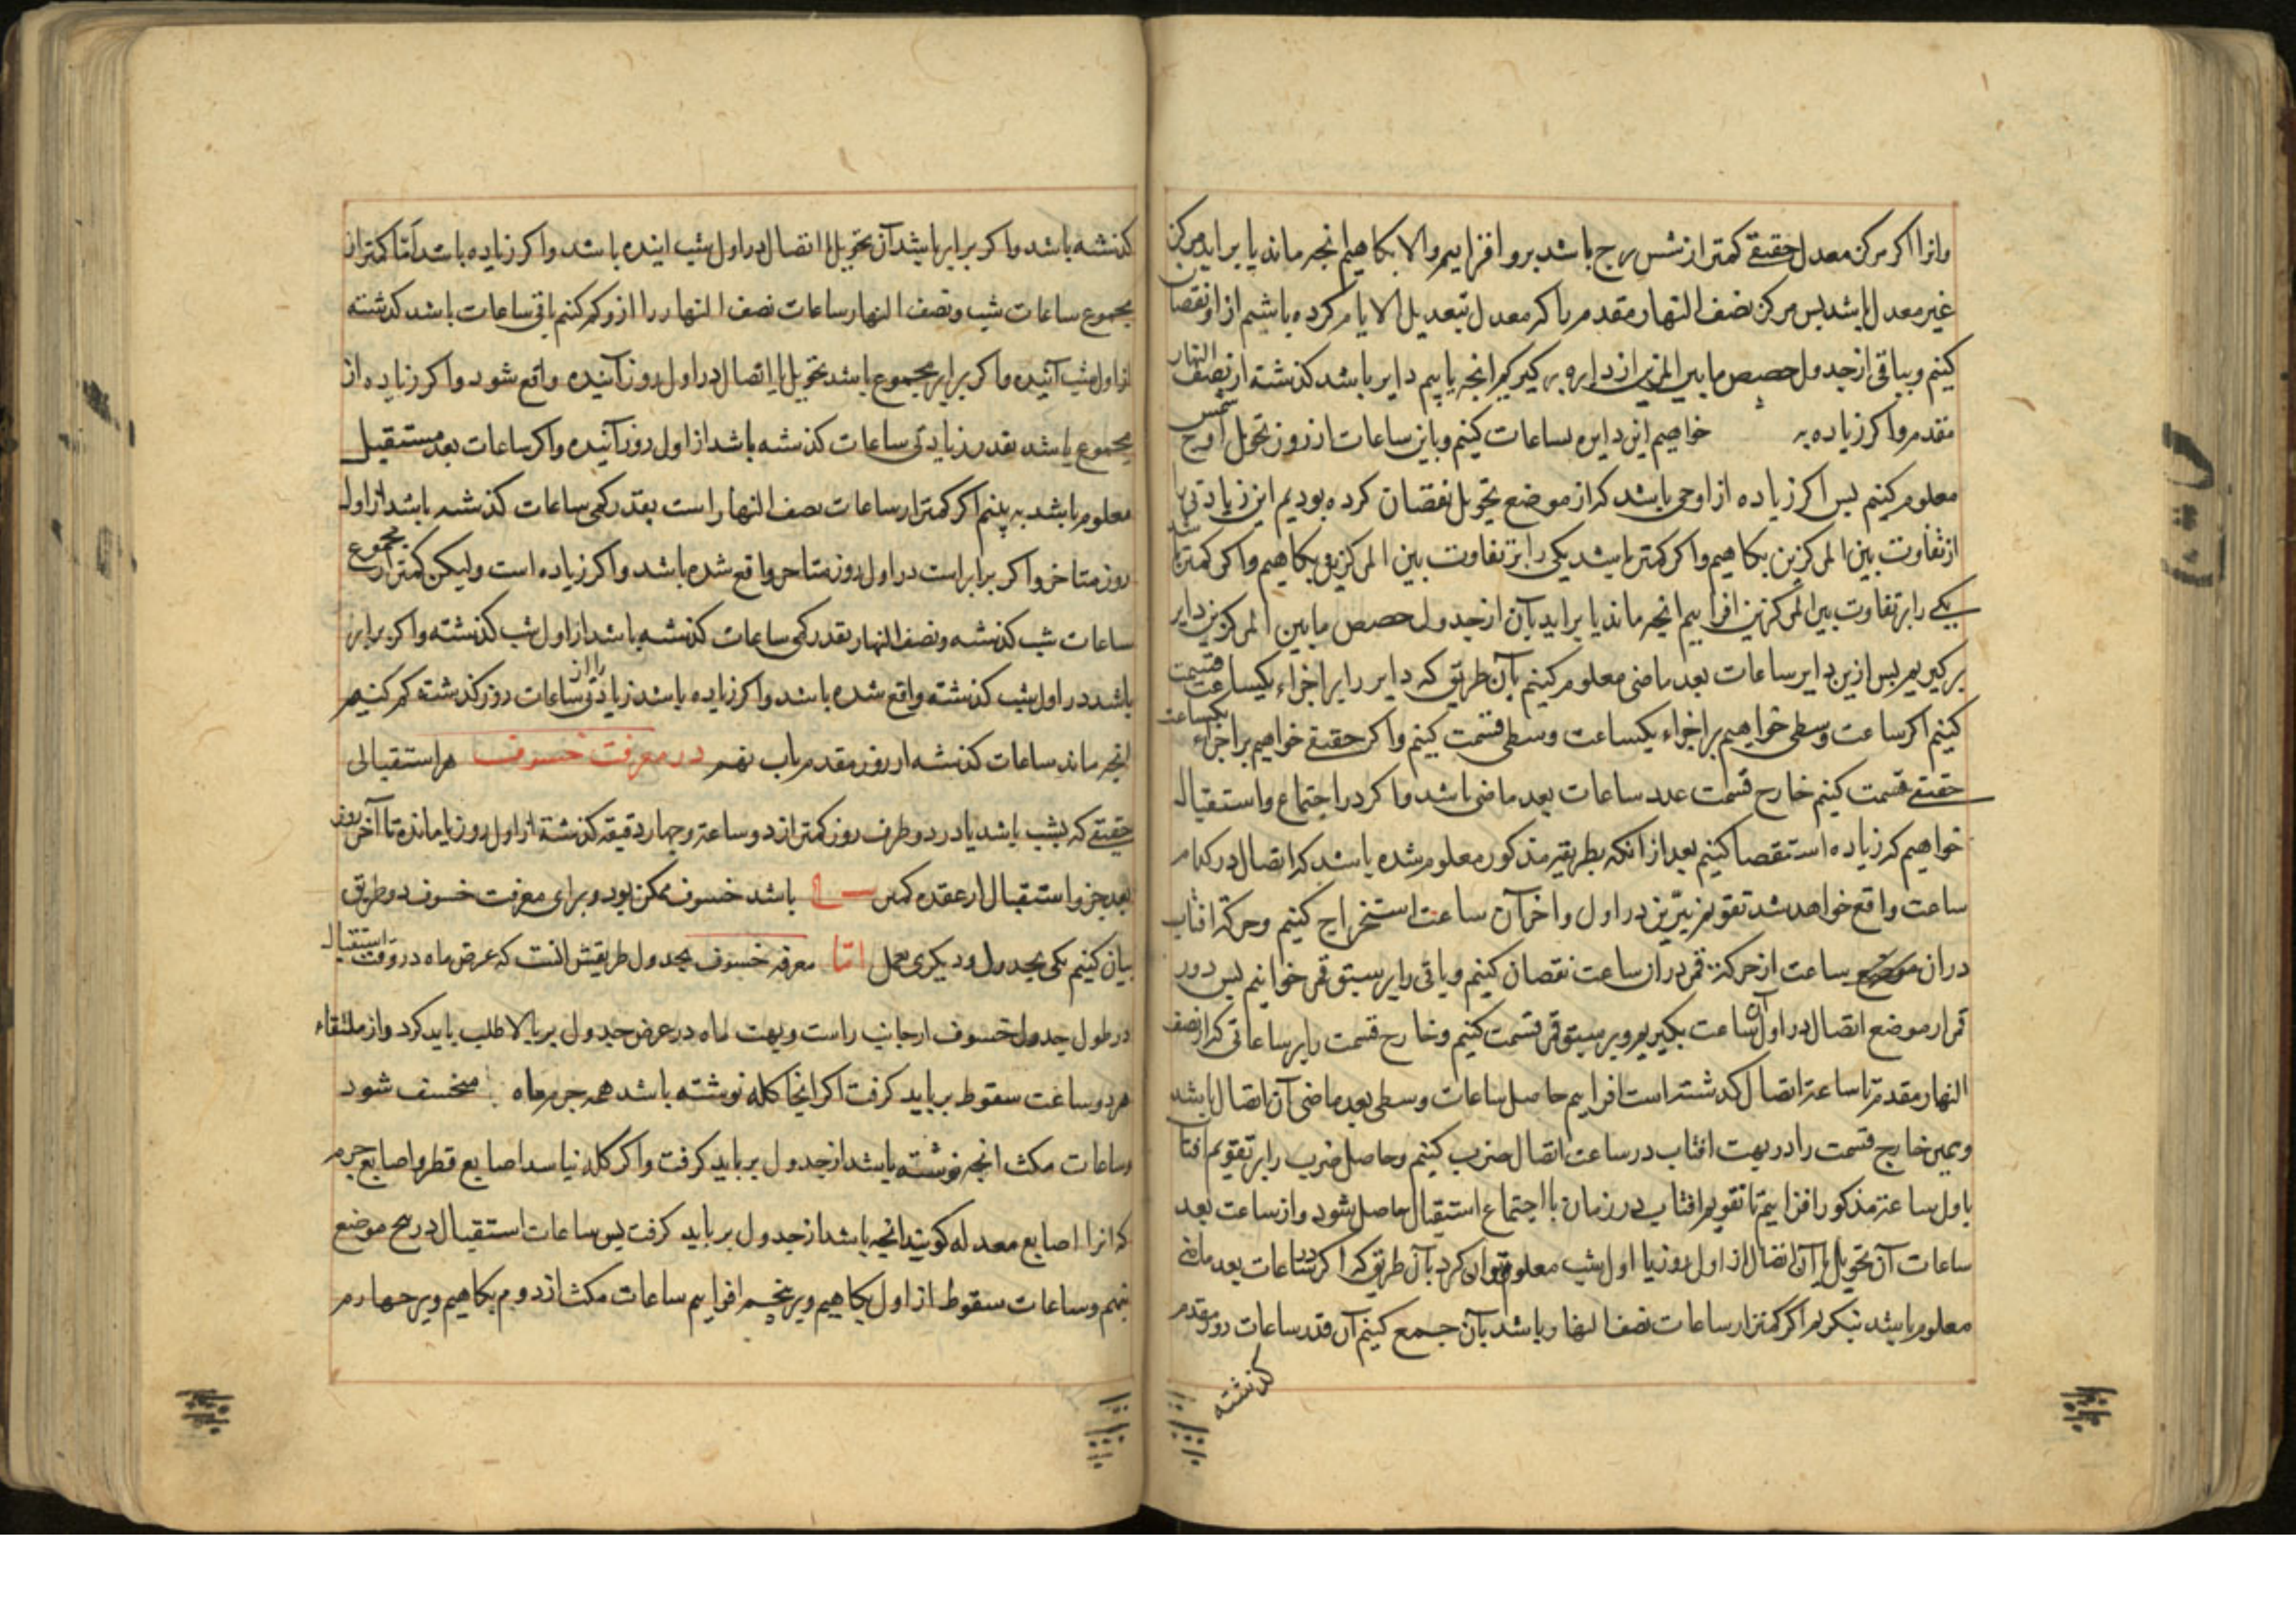 وانرا اکر مرکز معدل حقیقے کمتر از شش برج باشد برو افزاییم والا بکاهیم انجه ماند یا براید مرکز
غیر معدل باشد بس مرکز نصف النهار مقدم را کر معدل بتعدیل الایام کرده باشیم از او نقصان
کنیم و بباقی از جدول حصص ما بین المرکزین از دایره بر کیریم انجه یابیم دایر باشد کذشته از نصف النهار
مقدم واکر زیاده به خواهیم این دایره بساعات کنیم وباین ساعات از روز تحویل اوج شمس
معلوم کنیم بس اکر زیاده از اوجی باشد که از موضع تحویل نقصان کرده بودیم این زیادتی را
از تفاوت بین المرکزین بکاهیم واکر کمتر باشد یکی را بر تفاوت بین المرکزین بکاهیم واکر کمتر باشد
یکے را بر تفاوت بین المرکزین افزاییم انجه ماند یا براید بآن از جدول حصص ما بین المرکزین دایر
بر کیریم بس ازین دایر ساعات بعد ماضی معلوم کنیم بآن طریق که دایر را بر اجزاء یکساعت قسمت
کنیم اکر ساعت وسطی خواهیم بر اجزاء یکساعت وسطی قسمت کنیم واکر حقیقے خواهیم بر اجزاء یکساعت
حقیقے قسمت کنیم خارج قسمت عدد ساعات بعد ماضی باشد واکر در اجتماع واستقبال
خواهیم که زیاده استقصا کنیم بعد از انکه بطریقه مذکور معلوم شده باشد که اتصال در کدام
ساعت واقع خواهد شد تقویم نیرین در اول واخر آن ساعت استخراج کنیم وحرکة افتاب
در ان ساعت از حرکة قمر در ان ساعت نقصان کنیم وباقی را بر سبق قمر خوانیم بس دور
قمر از موضع اتصال در اول آن ساعت بکیریم وبر سبق قمر قسمت کنیم وخارج قسمت را بر ساعاتی که از نصف
النهار مقدم تا ساعة اتصال کذشته است افزاییم حاصل ساعات وسطی بعد ماضی آن اتصال باشد
وهمین خارج قسمت را در بهت افتاب در ساعت اتصال ضرب کنیم وحاصل ضرب را بر تقویم افتا
باول ساعة مذکور افزاییم تا تقویم افتاب در زمان با اجتماع استقبال حاصل شود واز ساعت بعد
ساعات آن تحویل یا آن اتصال از اول روز یا اول شب معلوم توان کرد بآن طریق که اکر در ساعات بعد ماضے
معلوم باشد بنکریم اکر کمتر از ساعات نصف النهار باشد بآن جمع کنیم آن قدر ساعات روز مقدم
کذشته
کذشته باشد واکر برابر باشد آن تحویل یا اتصال در اول شب اینده باشد واکر زیاده باشد اما کمتر از
مجموع ساعات شب ونصف النهار ساعات نصف النهار را از وکم کنیم باقی ساعات باشد کذشته
از اول شب آئنده واکر برابر مجموع باشد تحویل یا اتصال در اول روز آئنده واقع شود واکر زیاده از
مجموع باشد بقدر زیادتی ساعات کذشته باشد از اول روز آئنده واکر ساعات بعد مستقبل
معلوم باشد به بینم اکر کمتر از ساعات نصف النهار است بقدر کمی ساعات کذشته باشد از اول
روز متاخر واکر برابر است در اول روز متاخر واقع شده باشد واکر زیاده است ولیکن کمتر از مجموع
ساعات شب کذشته ونصف النهار بقدر کمی ساعات کذشته باشد از اول شب کذشته واکر برابر
باشد در اول شب کذشته واقع شده باشد واکر زیاده باشد زیادتی را از ساعات روز کذشته کم کنیم
انجه ماند ساعات کذشته از روز مقدم باب نهم در معرفت خسوف هر استقبالی
حقیقے که بشب باشد یا در دو طرف روز کمتر از دو ساعة وجهار دقیقه کذشتة از اول روز یا مانده تا آخر روز
بعد جزو استقبال از عقده کمتر باشد خسوف ممکن بود وبرای معرفت خسوف دو طریق
بیان کنیم یکی بجدول ودیکری بعمل اما معرفة خسوف بجدول طریقش انست که عرض ماه در وقت استقبال
در طول جدول خسوف از جانب راست وبهت ماه در عرض جدول بر بالا طلب باید کرد واز ملتقاء
هر دو ساعت سقوط بر باید کرفت اکر انجا کله نوشته باشد همه جرم ماه منخسف شود
وساعات مکث انجه نوشته باشد از جدول بر باید کرفت واکر کله نباشد اصابع قطر واصابع جرم
که انرا اصابع معدله کویند انجه باشد از جدول بر باید کرفت بس ساعات استقبال در پنج موضع
بنهیم وساعات سقوط از اول بکاهیم وبر پنجم افزاییم ساعات مکث از دوم بکاهیم وبر جهارم